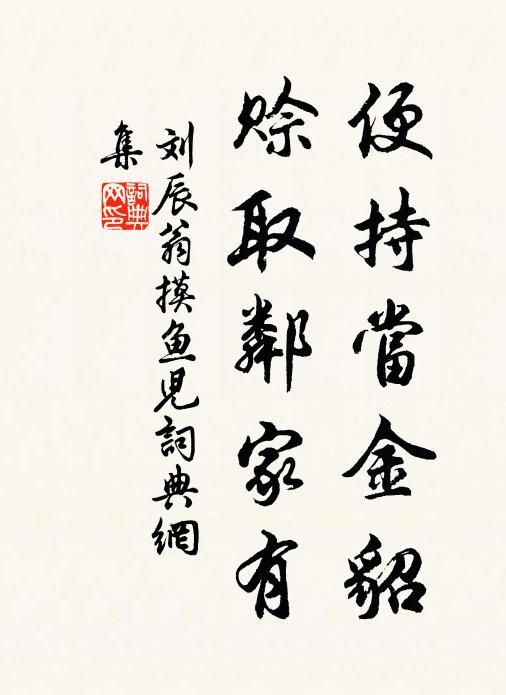 便持當金貂
賒取鄰家有
刘辰翁摸鱼児詞典網
集
詞典网印